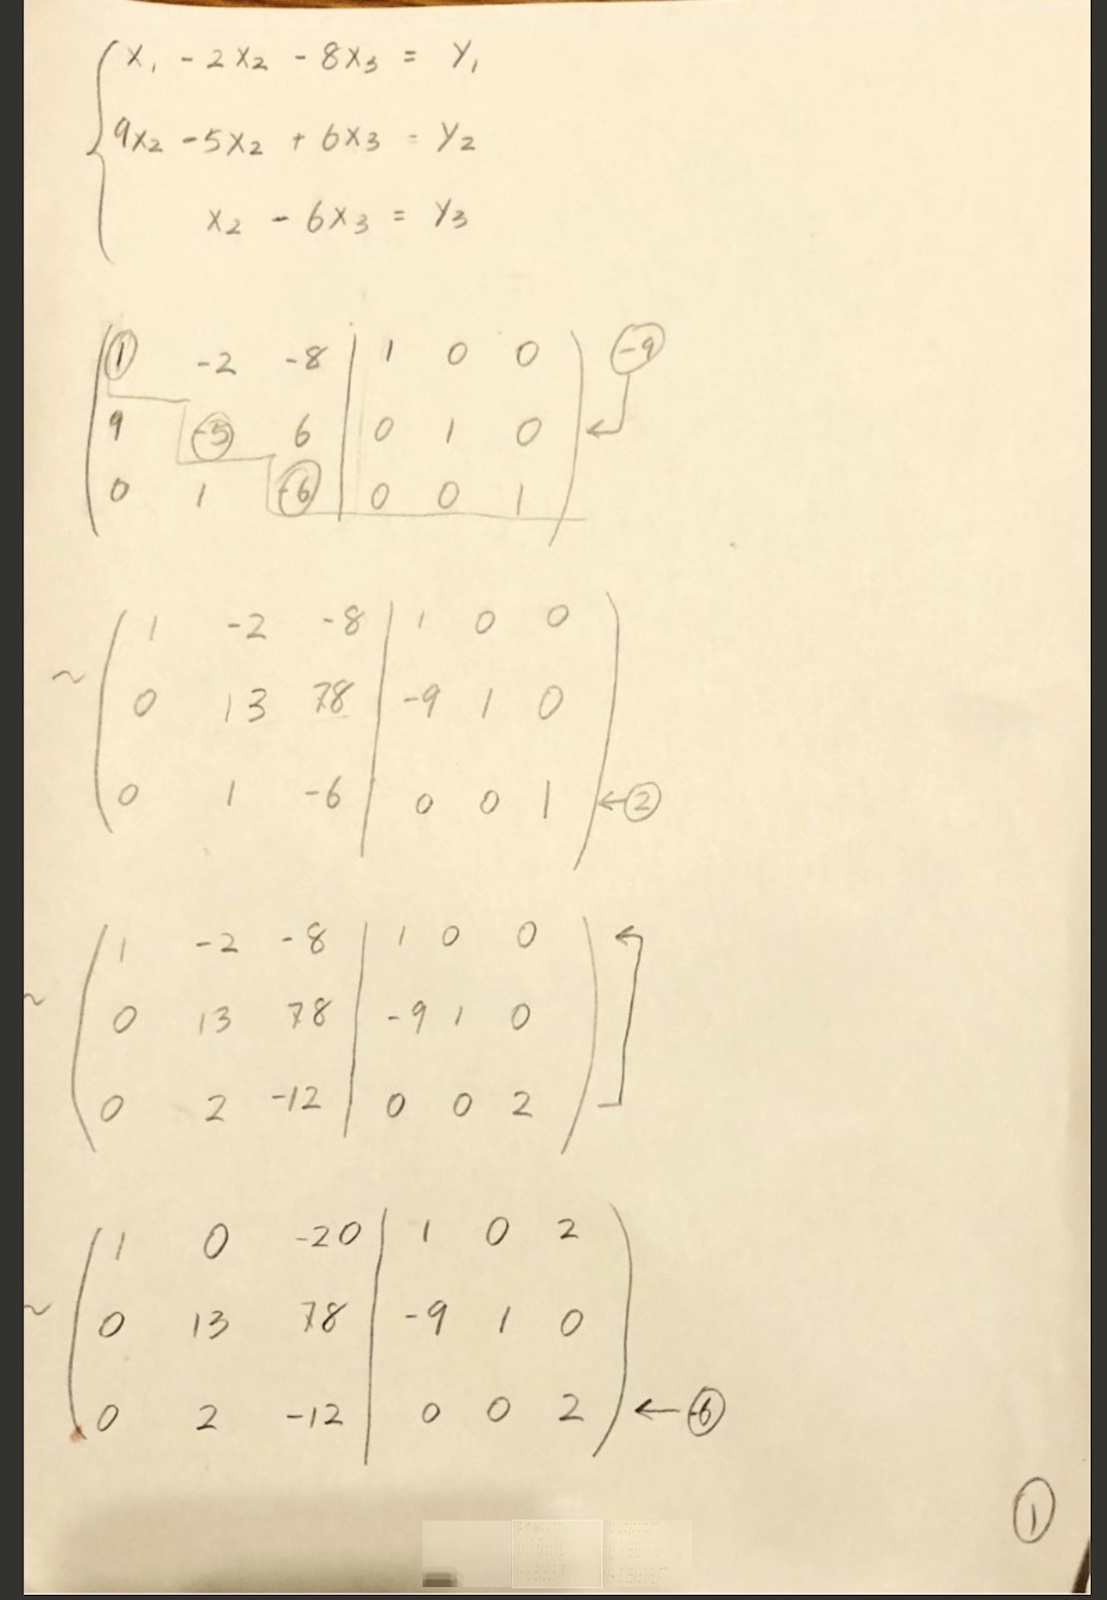 x₁ - 2x₂ - 8x₃ = y₁
9x₂ - 5x₂ + 6x₃ = y₂
x₂ - 6x₃ = y₃
1 -2 -8 | 1 0 0 -9
9 -5 6 | 0 1 0 ←
0 1 -6 | 0 0 1
1 -2 -8 | 1 0 0
~ 0 13 78 | -9 1 0
0 1 -6 | 0 0 1 ← 2
1 -2 -8 | 1 0 0 ←
~ 0 13 78 | -9 1 0
0 2 -12 | 0 0 2
1 0 -20 | 1 0 2
~ 0 13 78 | -9 1 0
0 2 -12 | 0 0 2 ← 6
1